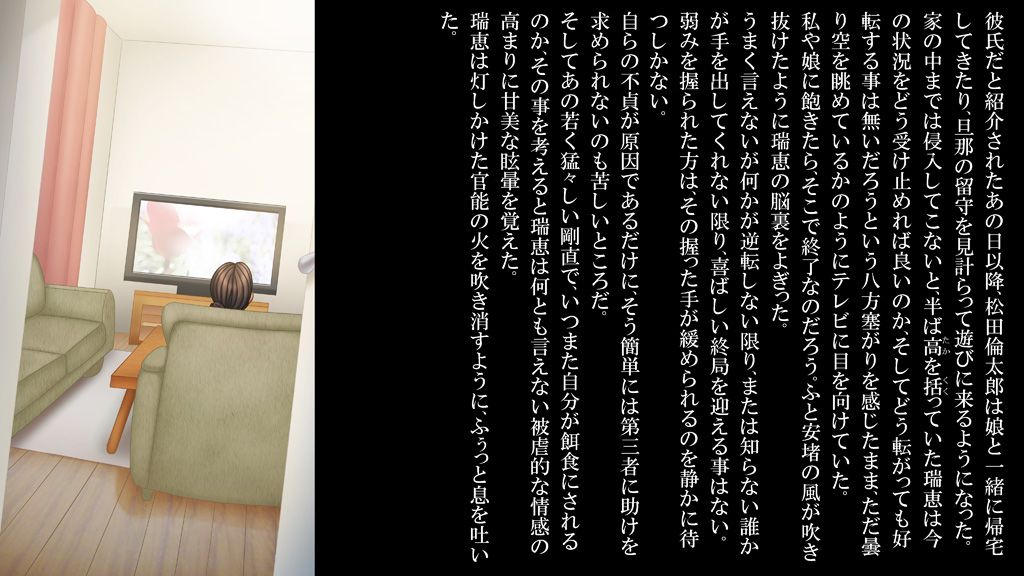 彼氏だと紹介されたあの日以降、松田倫太郎は娘と一緒に帰宅
してきたり、旦那の留守を見計らって遊びに来るようになった。
家の中までは侵入してこないと、半ば高を括っていた瑞恵は今
の状況をどう受け止めれば良いのか、そしてどう転がっても好
転する事は無いだろうという八方塞がりを感じたまま、ただ曇
り空を眺めているかのようにテレビに目を向けていた。
私や娘に飽きたら、そこで終了なのだろう。ふと安堵の風が吹き
抜けたように瑞恵の脳裏をよぎった。
うまく言えないが何かが逆転しない限り、または知らない誰か
が手を出してくれない限り、喜ばしい終局を迎える事はない。
弱みを握られた方は、その握った手が緩められるのを静かに待
つしかない。
自らの不貞が原因であるだけに、そう簡単には第三者に助けを
求められないのも苦しいところだ。
そしてあの若く猛々しい剛直で、いつまた自分が餌食にされる
のか、その事を考えると瑞恵は何とも言えない被虐的な情感の
高まりに甘美な眩暈を覚えた。
瑞恵は灯しかけた官能の火を吹き消すように、ふぅっと息を吐い
た。